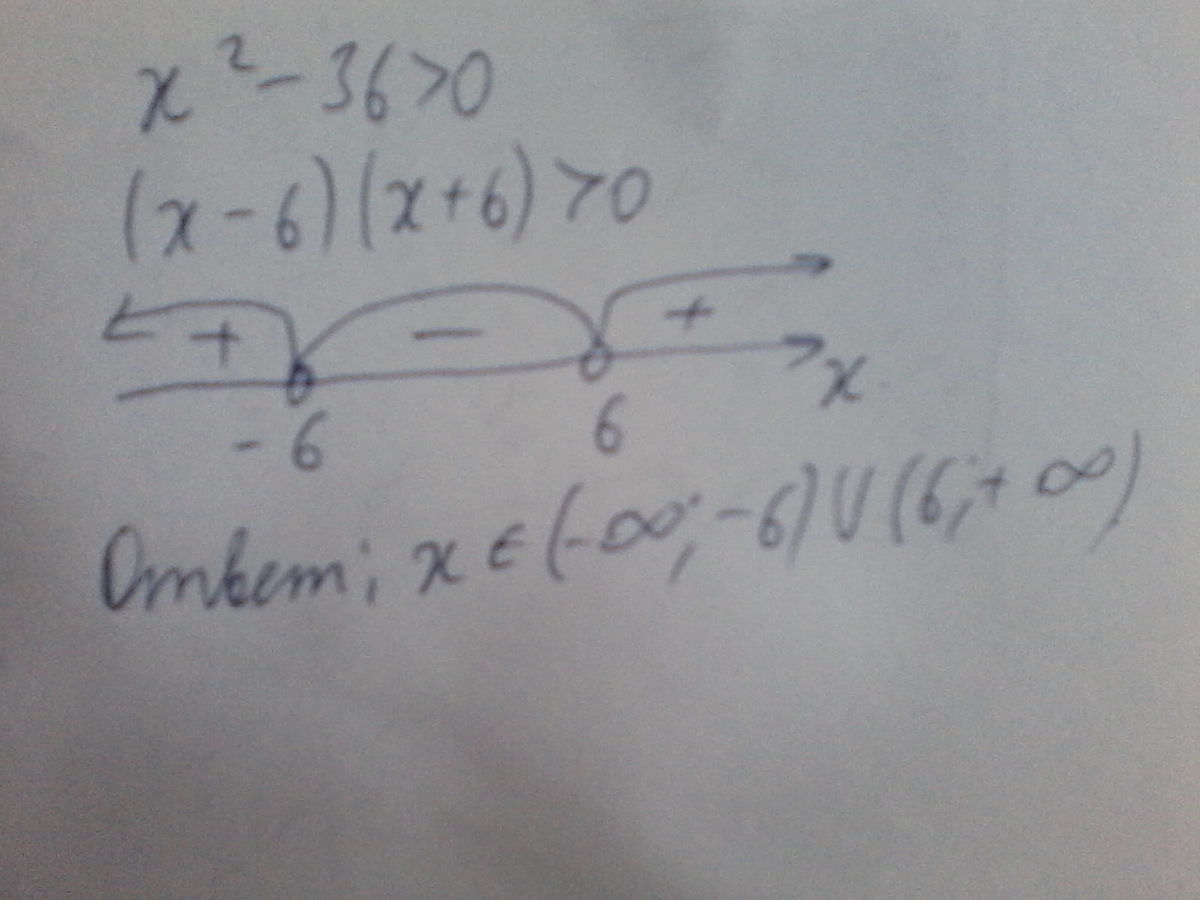 x² - 36 > 0
(x - 6)(x + 6) > 0
+ − +
-6 6 x
Ответ: x ∈ (-∞; -6) ∪ (6; + ∞)